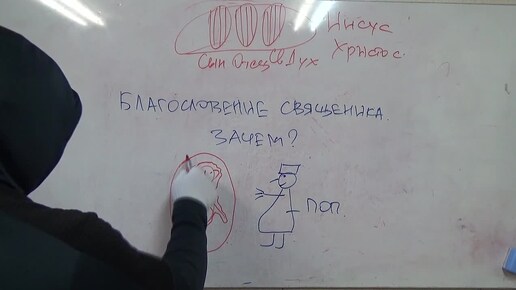 Иисус
Христос.
Сын Отец Св Дух
БЛАГОСЛОВЕНИЕ СВЯЩЕНИКА.
ЗАЧЕМ?
ПОП.